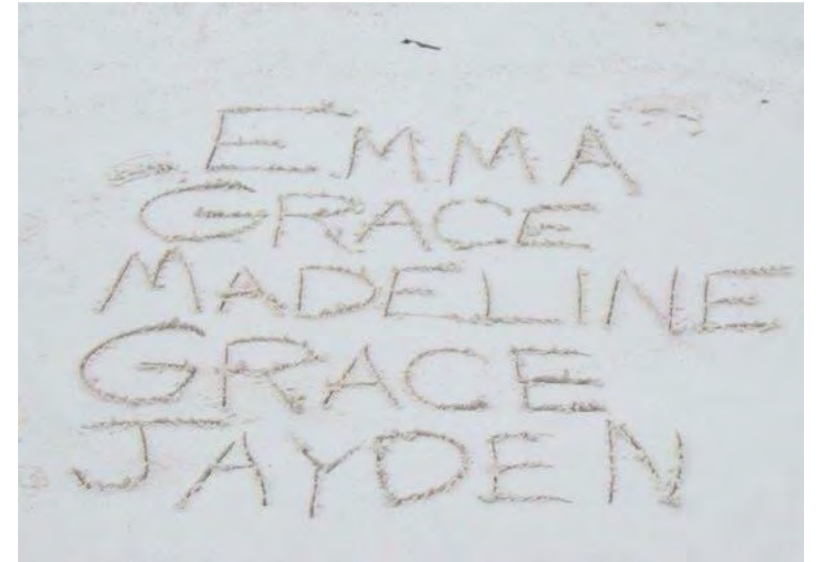 EMMA
GRACE
MADELINE
GRACE
JAYDEN